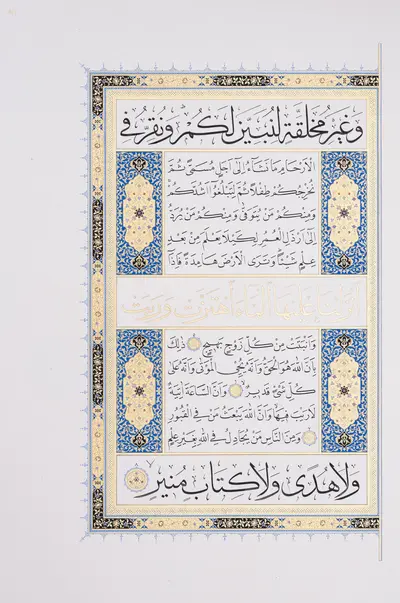 وَغَيْرِ مُخَلَّقَةٍ لِنُبَيِّنَ لَكُمْ وَنُقِرُّ فِي
الْأَرْحَامِ مَا نَشَاءُ إِلَى أَجَلٍ مُسَمًّى ثُمَّ
نُخْرِجُكُمْ طِفْلًا ثُمَّ لِتَبْلُغُوا أَشُدَّكُمْ
وَمِنْكُمْ مَنْ يُتَوَفَّى وَمِنْكُمْ مَنْ يُرَدُّ
إِلَى أَرْذَلِ الْعُمُرِ لِكَيْلَا يَعْلَمَ مِنْ بَعْدِ
عِلْمٍ شَيْئًا وَتَرَى الْأَرْضَ هَامِدَةً فَإِذَا
أَنْزَلْنَا عَلَيْهَا الْمَاءَ اهْتَزَّتْ وَرَبَتْ
وَأَنْبَتَتْ مِنْ كُلِّ زَوْجٍ بَهِيجٍ ذَلِكَ
بِأَنَّ اللَّهَ هُوَ الْحَقُّ وَأَنَّهُ يُحْيِي الْمَوْتَى وَأَنَّهُ عَلَى
كُلِّ شَيْءٍ قَدِيرٌ وَأَنَّ السَّاعَةَ آتِيَةٌ
لَا رَيْبَ فِيهَا وَأَنَّ اللَّهَ يَبْعَثُ مَنْ فِي الْقُبُورِ
وَمِنَ النَّاسِ مَنْ يُجَادِلُ فِي اللَّهِ بِغَيْرِ عِلْمٍ
وَلَا هُدًى وَلَا كِتَابٍ مُنِيرٍ